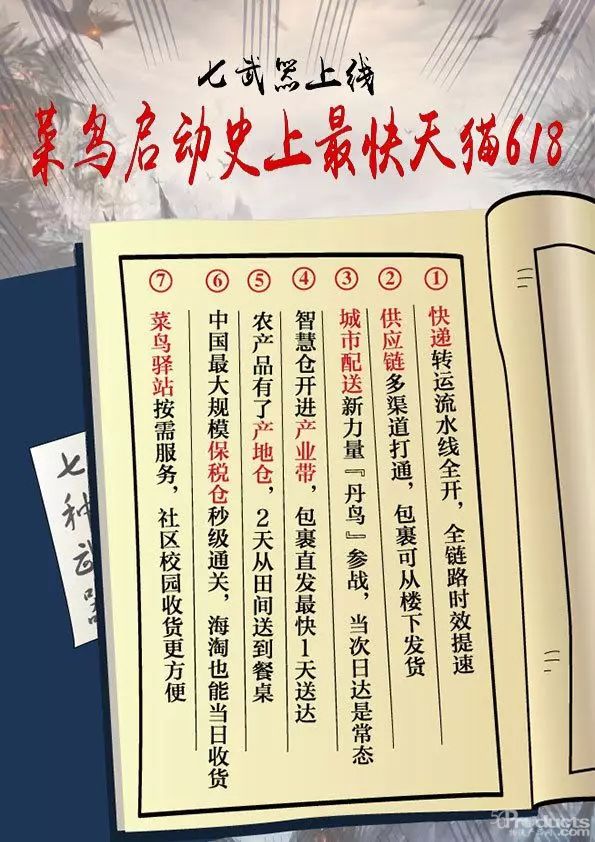 七武器上线
菜鸟启动史上最快天猫618
① 快递转运流水线全开，全链路时效提速
② 供应链多渠道打通，包裹可从楼下发货
③ 城市配送新力量『丹鸟』参战，当次日达是常态
④ 智慧仓开进产业带，包裹直发最快1天送达
⑤ 农产品有了产地仓，2天从田间送到餐桌
⑥ 中国最大规模保税仓秒级通关，海淘也能当日收货
⑦ 菜鸟驿站按需服务，社区校园收货更方便
七种武器